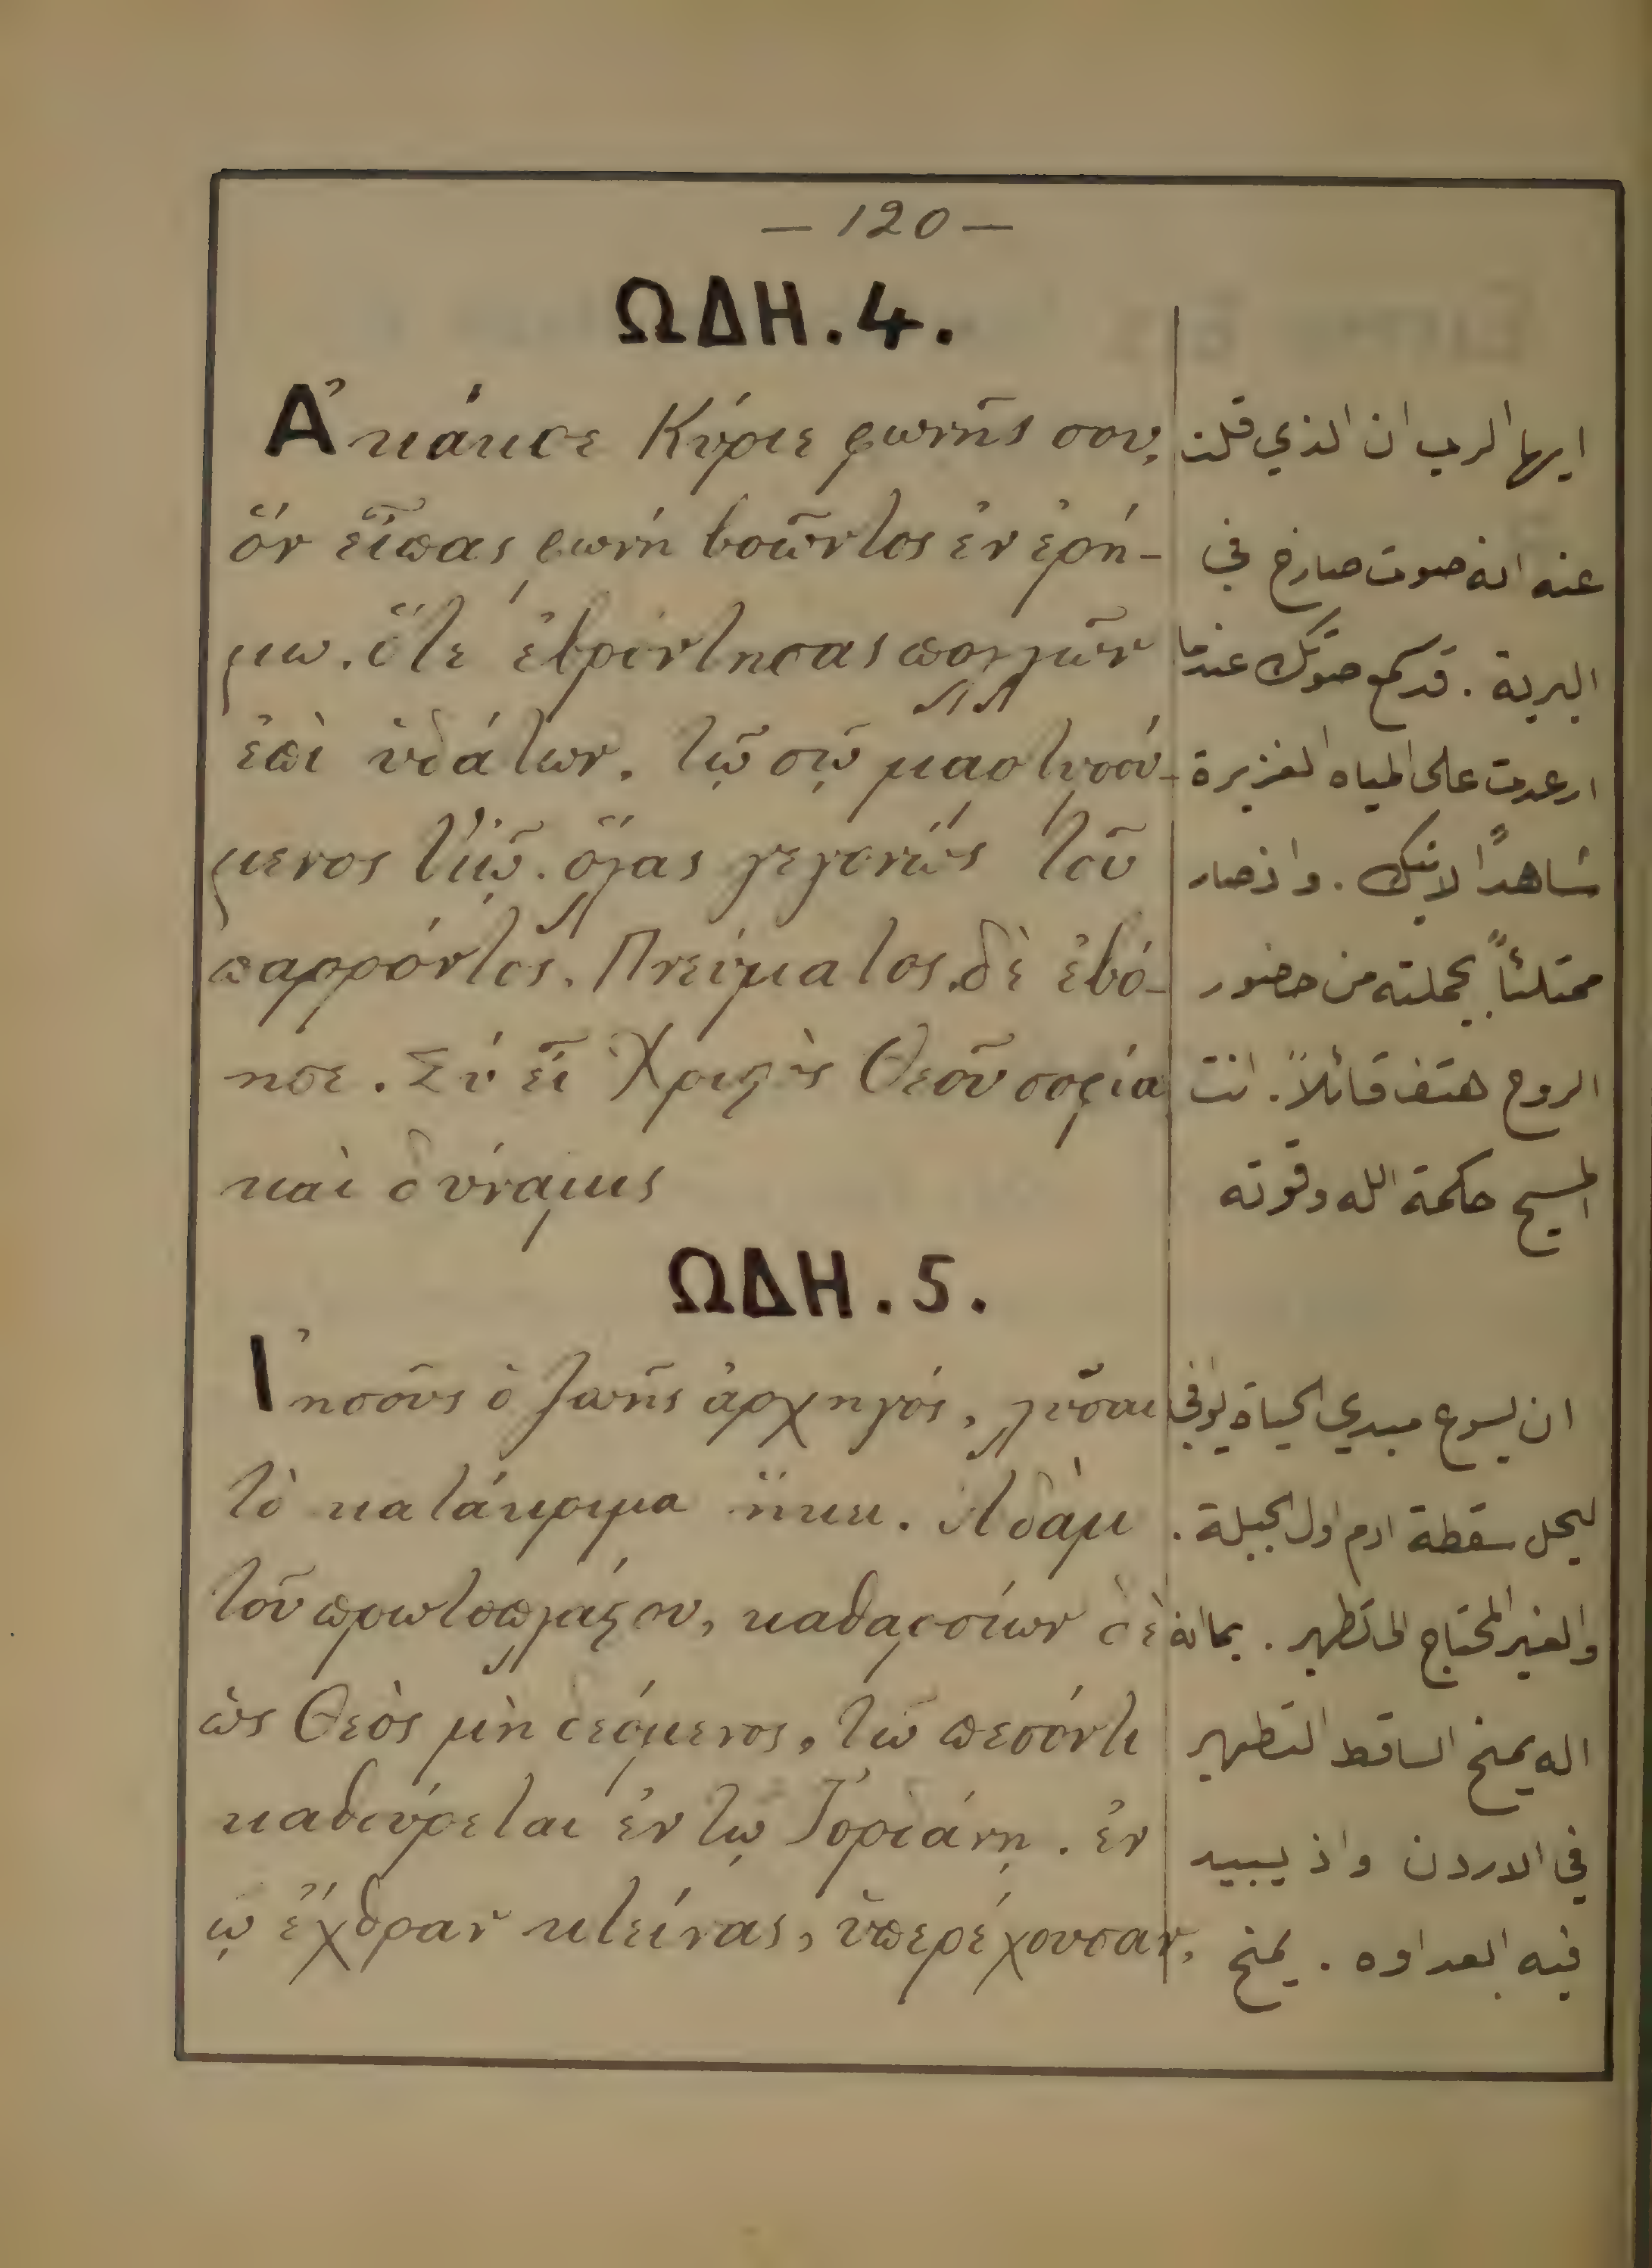 — 120 —
ΩΔΗ . 4 .
Ἀκήκοε Κύριε φωνῆς σου,
ὅν εἶπας φωνή βοῶντος ἐν ἐρή-
μω. ὅτε ἐβρόντησας πολλῶν
ἐπὶ ὑδάτων. τῷ σῷ μαρτυρού-
μενος Υἱῷ. ὅλος γεγονώς τοῦ
παρρόντος. Πνεύματος. δὲ ἐβό-
ησε. Σύ εἶ Χριστὸς Θεοῦ σοφία
καὶ δύναμις
ايها الرب ان الذي قلت
عنه انه صوت صارخ في
البرية . قد سمع صوتك عندما
ارعدت على المياه الغزيرة
شاهدًا لابنك . واذ صار
ممتلئاً بجملته من حضور
الروح هتف قائلاً . انت
المسيح حكمة الله وقوته
ΩΔΗ . 5 .
Ἰησοῦς ὁ ζωῆς ἀρχηγός, λῦσαι
τὸ κατάκριμα ἥκει. Ἀδὰμ
τοῦ πρωτοπλάστου, καθαρσίων δὲ
ὡς Θεὸς μὴ δεόμενος, τῶ πεσόντι
καθαίρεται ἐν τῷ Ἰορδάνῃ . ἐν
ᾧ ἔχθραν κτείνας, ὑπερέχουσαν,
ان يسوع مبدي الحياة يوافي
ليحل سقطة ادم اول الجبلة .
والغير المحتاج الى تطهير . بما انه
اله يمنح الساقط التطهير
في الاردن واذ يبيد
فيه العداوه . يمنح